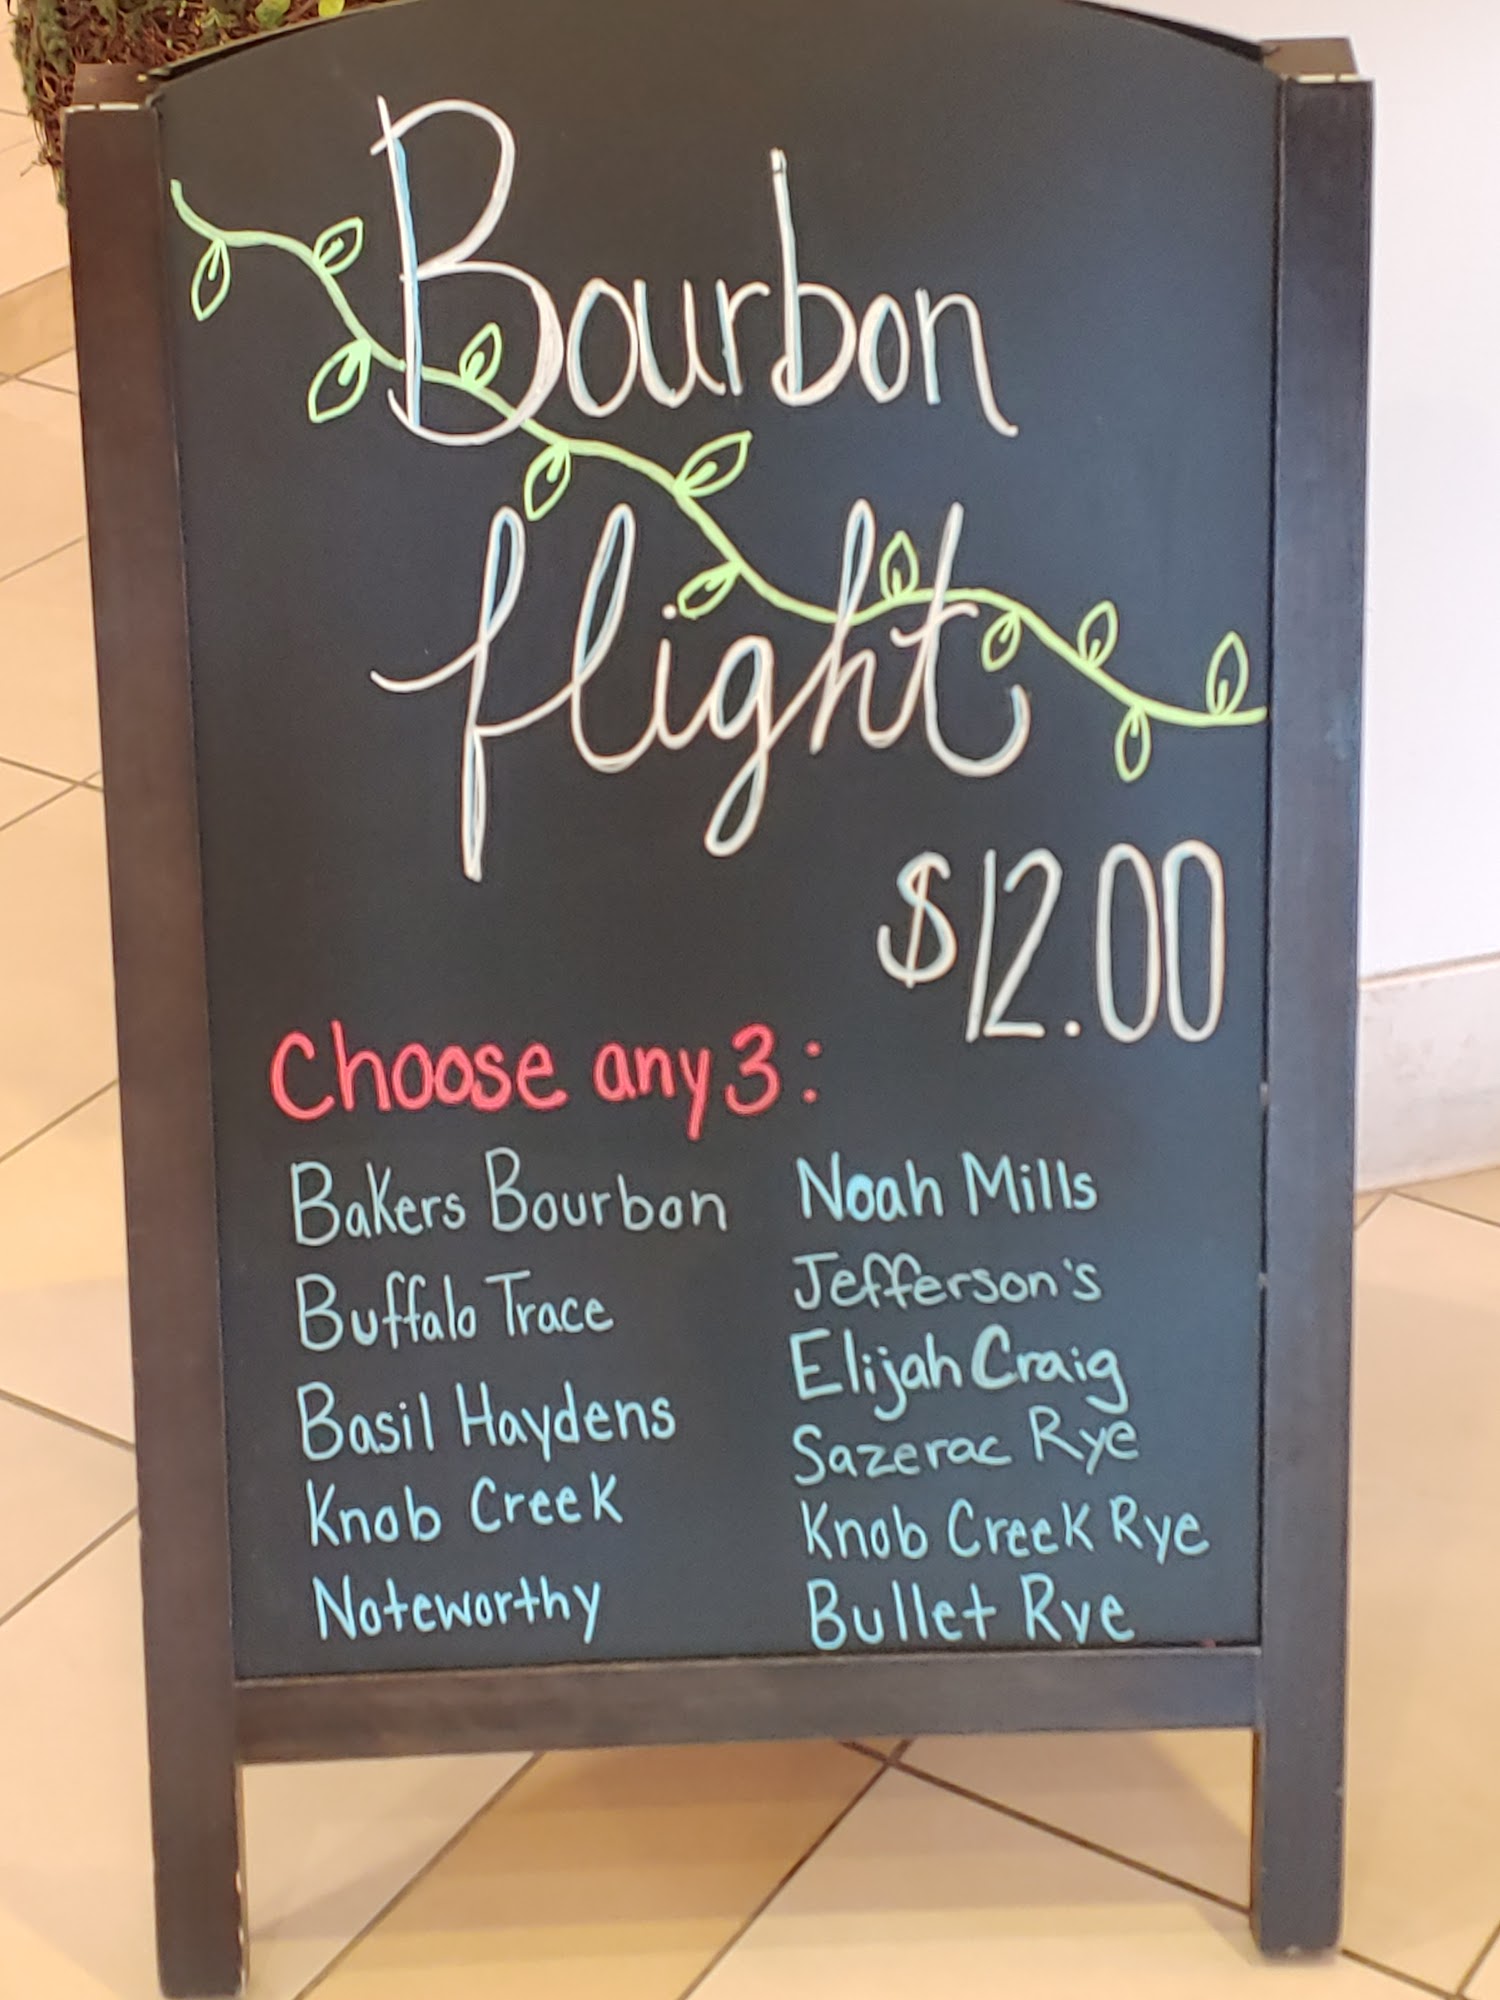 Bourbon
flight
$12.00
Choose any 3:
Bakers Bourbon
Buffalo Trace
Basil Haydens
Knob Creek
Noteworthy
Noah Mills
Jefferson's
Elijah Craig
Sazerac Rye
Knob Creek Rye
Bullet Rye